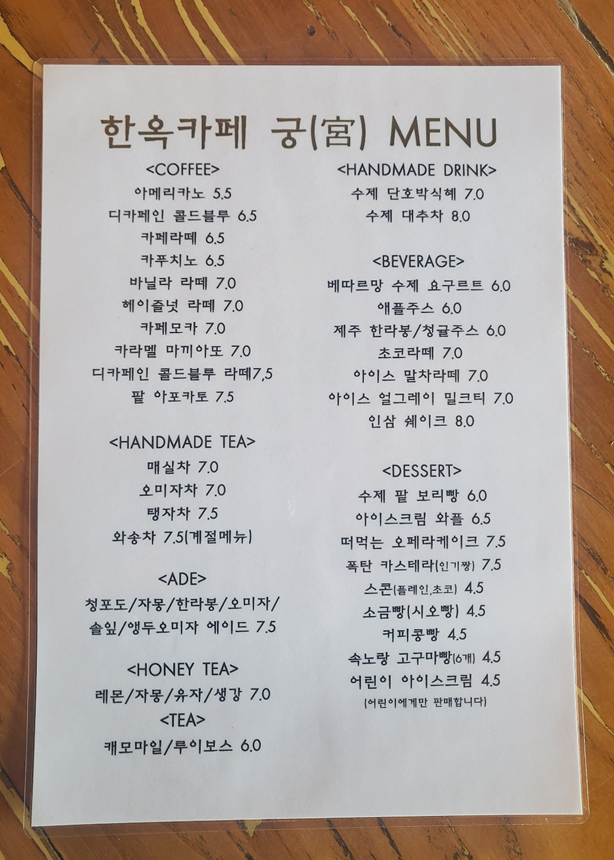 한옥카페 궁(宮) MENU
<COFFEE>
아메리카노 5.5
디카페인 콜드블루 6.5
카페라떼 6.5
카푸치노 6.5
바닐라 라떼 7.0
헤이즐넛 라떼 7.0
카페모카 7.0
카라멜 마끼아또 7.0
디카페인 콜드블루 라떼7,5
팥 아포카토 7.5
<HANDMADE TEA>
매실차 7.0
오미자차 7.0
탱자차 7.5
와송차 7.5(계절메뉴)
<ADE>
청포도/자몽/한라봉/오미자/
솔잎/앵두오미자 에이드 7.5
<HONEY TEA>
레몬/자몽/유자/생강 7.0
<TEA>
캐모마일/루이보스 6.0
<HANDMADE DRINK>
수제 단호박식혜 7.0
수제 대추차 8.0
<BEVERAGE>
베따르망 수제 요구르트 6.0
애플주스 6.0
제주 한라봉/청귤주스 6.0
초코라떼 7.0
아이스 말차라떼 7.0
아이스 얼그레이 밀크티 7.0
인삼 쉐이크 8.0
<DESSERT>
수제 팥 보리빵 6.0
아이스크림 와플 6.5
떠먹는 오페라케이크 7.5
폭탄 카스테라(인기짱) 7.5
스콘(플레인,초코) 4.5
소금빵(시오빵) 4.5
커피콩빵 4.5
속노랑 고구마빵(6개) 4.5
어린이 아이스크림 4.5
(어린이에게만 판매합니다)